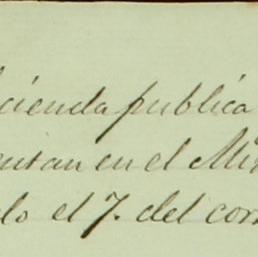 cienda publica
entan en el Min
do el 7. del corr